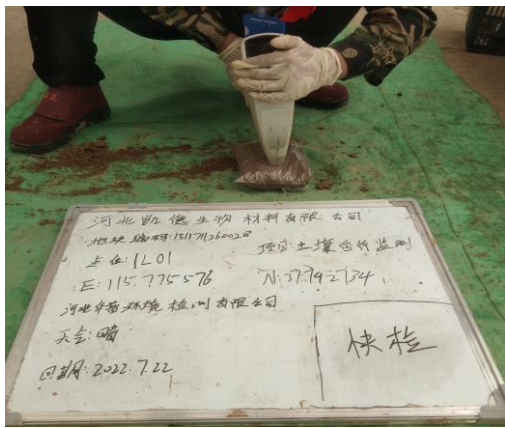 河北凯德生物材料有限公司
地块编码:1311711260028
项目:土壤自行监测
点位:1L01
E:115.775576
N:37.792734
河北华普环境检测有限公司
天气:晴
日期:2022.7.22
快检